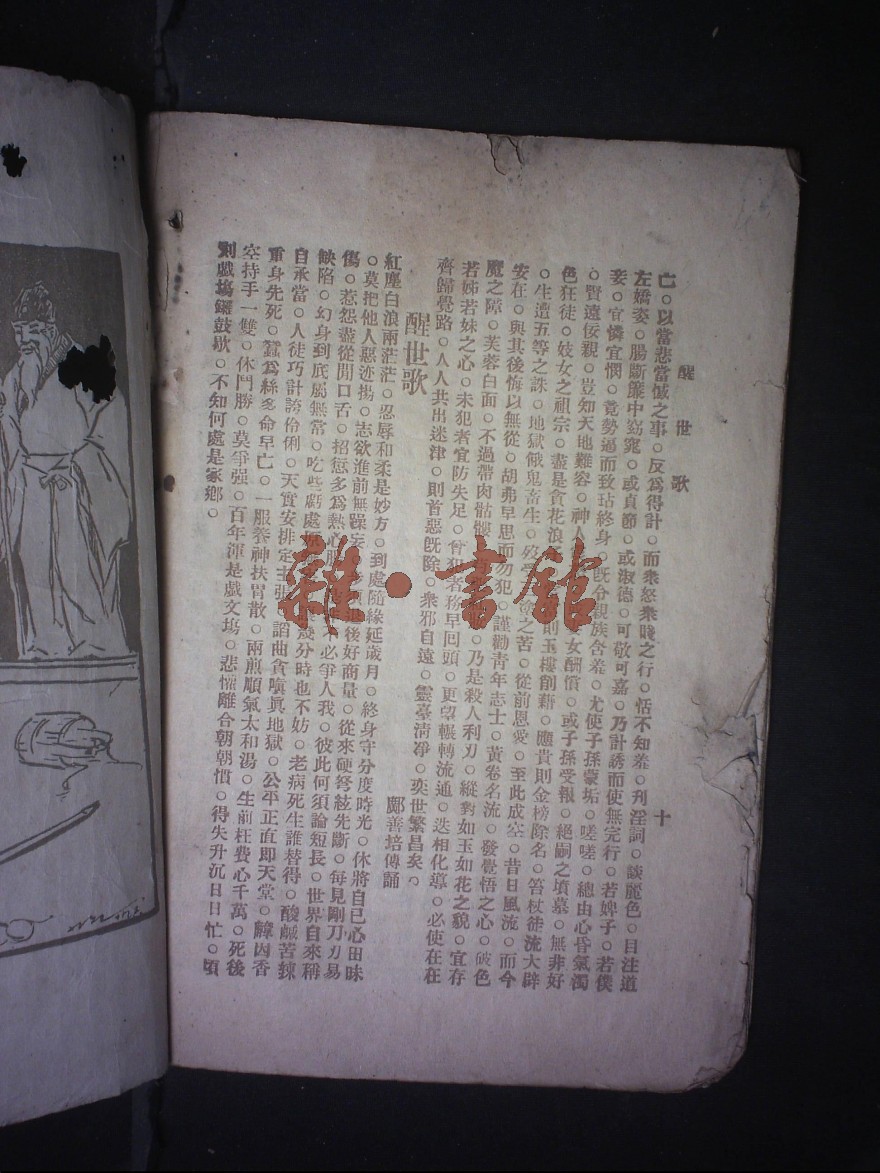 醒世歌 十
亡。以當悲當慽之事。反爲得計。而衆怒衆賤之行。恬不知羞。刋淫詞。談麗色。目注道
左嬌姿。腸斷簾中窈窕。或貞節。或淑德。可敬可嘉。乃計誘而使無完行。若婢子。若僕
妾。宜憐宜憫。竟勢逼而致玷終身。旣令親族含羞。尤使子孫蒙垢。嗟嗟。總由心昏氣濁
。賢遠佞親。豈知天地難容。神人 女酬償。或子孫受報。絕嗣之墳墓。無非好
色狂徒。妓女之祖宗。盡是貪花浪 則玉樓削藉。應貴則金榜除名。笞杖徒流大辟
。生遭五等之誅。地獄餓鬼畜生。歿受 途之苦。從前恩愛。至此成空。昔日風流。而今
安在。與其後悔以無從。胡弗早思而勿犯。謹勸靑年志士。黃卷名流。發覺悟之心。破色
魔之障。芙蓉白面。不過帶肉骷髏。 乃是殺人利刃。縱對如玉如花之貌。宜存
若姊若妹之心。未犯者宜防失足。曾犯者務早回頭。更望輾轉流通。迭相化導。必使在在
齊歸覺路。人人共出迷津。則首惡旣除。衆邪自遠。靈臺淸淨。奕世繁昌矣。
醒世歌 鄺善培傳誦
紅塵白浪兩茫茫。忍辱和柔是妙方。到處隨緣延歲月。終身守分度時光。休將自已心田昧
。莫把他人惡迹揚。志欲進前無躁妄。 後好商量。從來硬弩絃先斷。每見剛刀刃易
傷。惹怨盡從閒口舌。招愆多爲熱心 必爭人我。彼此何須論短長。世界自來稱
缺陷。幻身到底屬無常。吃些虧處原 幾分時也不妨。老病死生誰替得。酸鹹苦辣
自承當。人徒巧計誇伶俐。天實安排定主張。諂曲貪嗔眞地獄。公平正直即天堂。麝因香
重身先死。蠶爲絲多命早亡。一服養神扶胃散。兩煎順氣太和湯。生前枉費心千萬。死後
空持手一雙。休鬥勝。莫爭强。百年渾是戲文塲。悲懽離合朝朝慣。得失升沉日日忙。頃
刻戲塲鑼鼓歇。不知何處是家鄕。
雜·書館